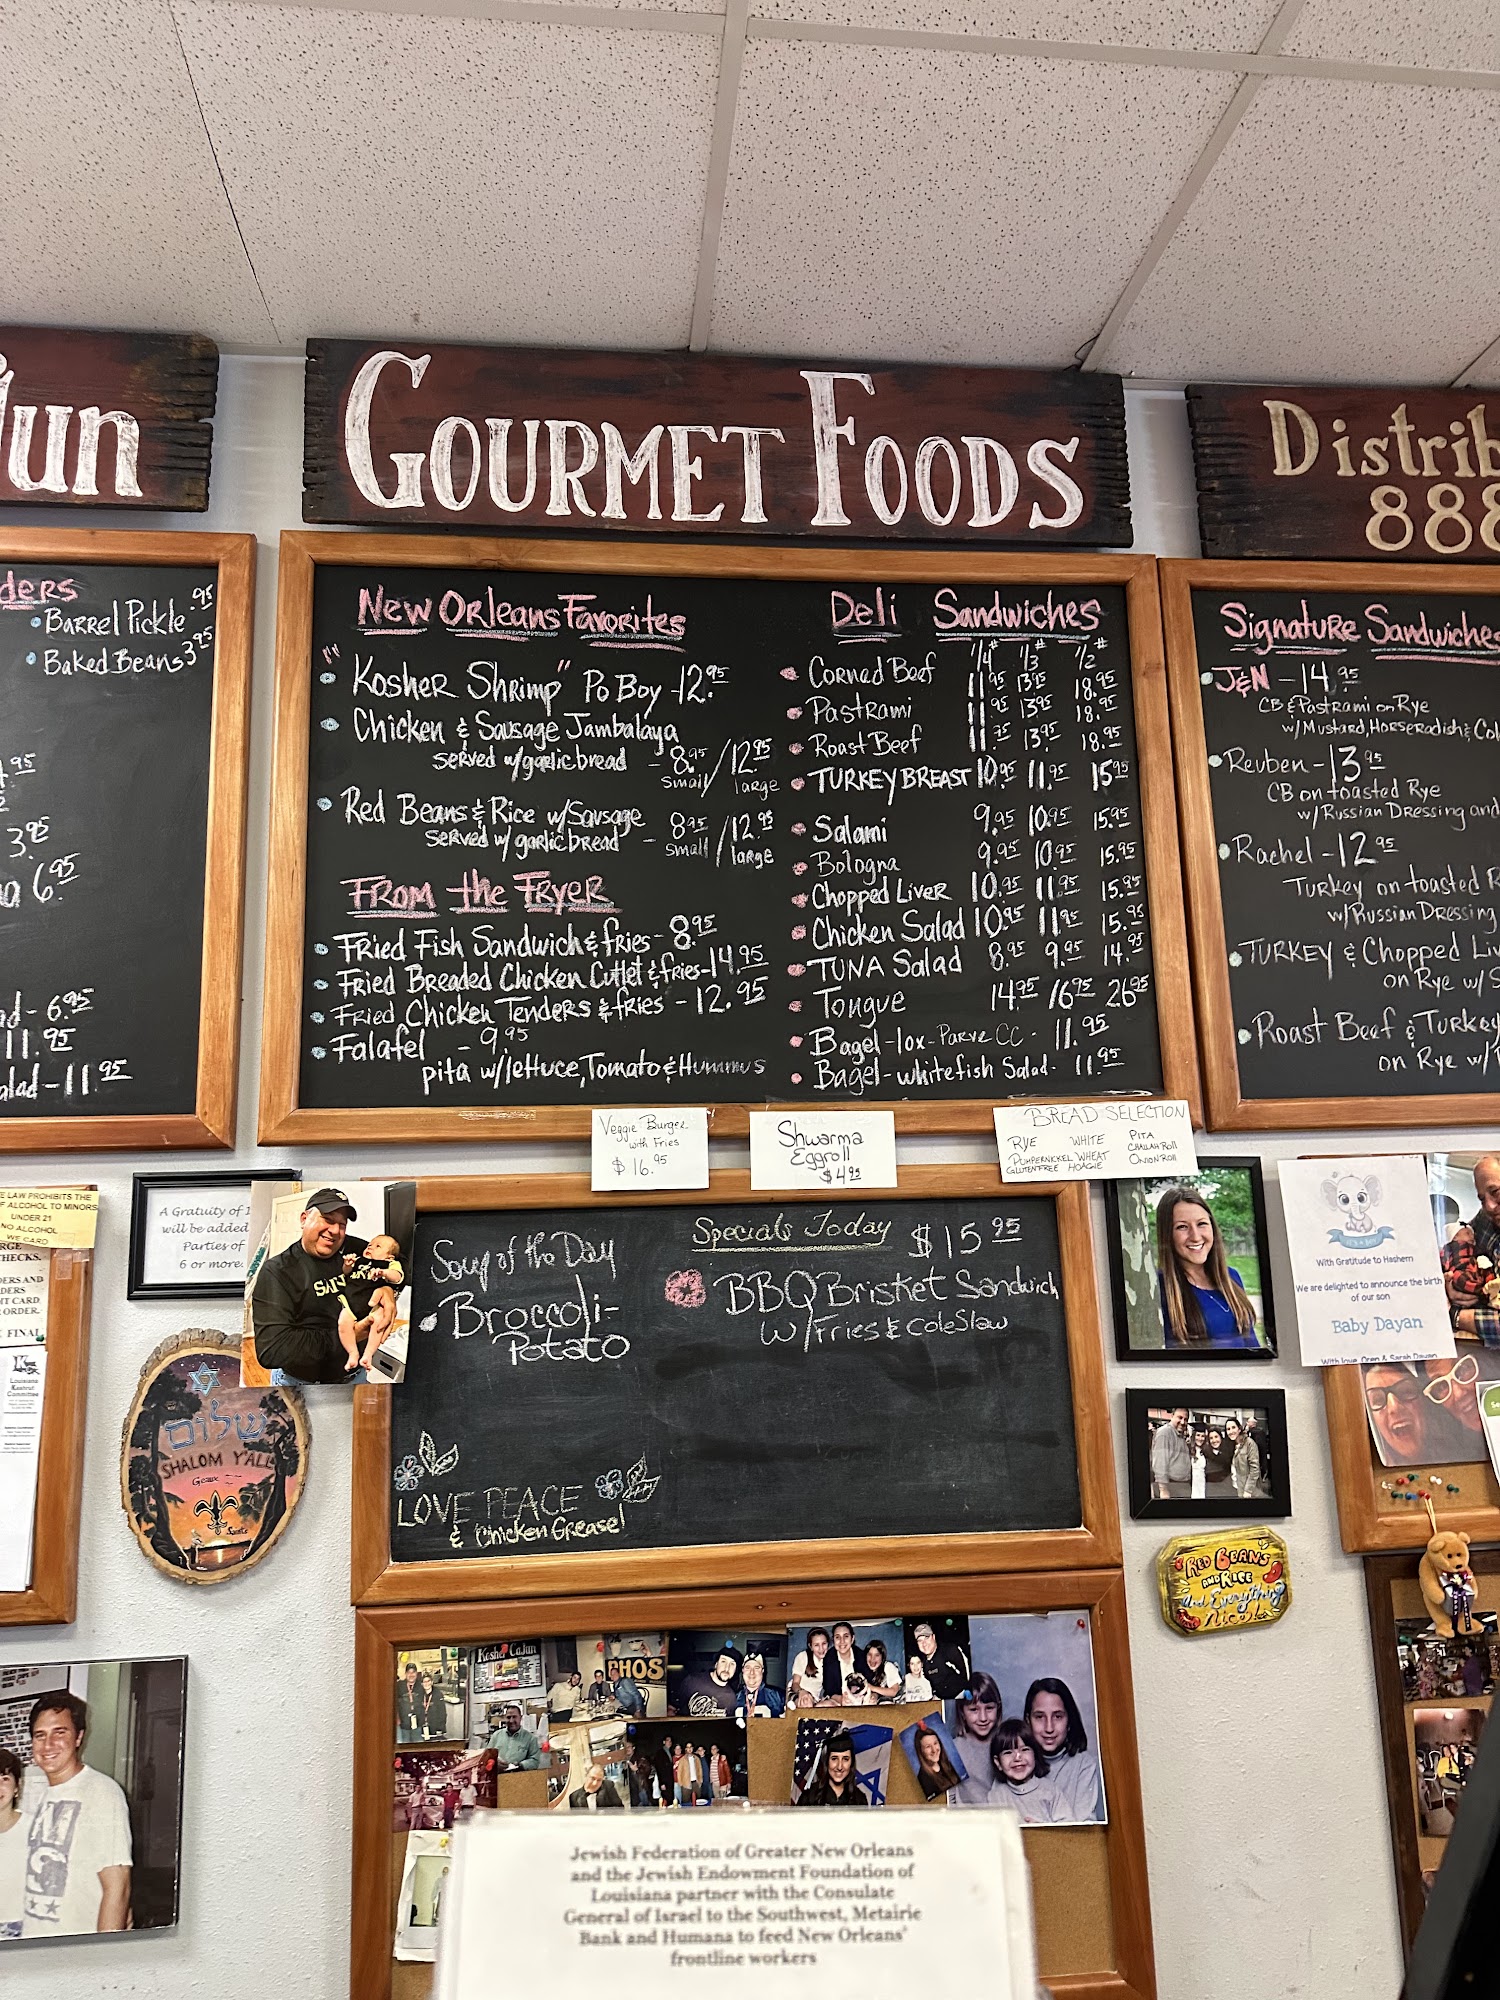 GOURMET FOODS
Distrib
888
jun
ders
Barrel Pickle .95
Baked Beans 3.95
3.95
6.95
6.95
11.95
alad - 11.95
New Orleans Favorites
"Kosher Shrimp" Po Boy - 12.95
Chicken & Sausage Jambalaya
served w/garlic bread - 8.95 / 12.95
small / large
Red Beans & Rice w/Sausage
served w/garlic bread - 8.95 / 12.95
small / large
From the Fryer
Fried Fish Sandwich & fries - 8.95
Fried Breaded Chicken Cutlet & fries - 14.95
Fried Chicken Tenders & fries - 12.95
Falafel - 9.95
pita w/lettuce, Tomato & Hummus
Deli Sandwiches
1/4# 1/3# 1/2#
Corned Beef 11.95 13.95 18.95
Pastrami 11.95 13.95 18.95
Roast Beef 11.95 13.95 18.95
TURKEY BREAST 10.95 11.95 15.95
Salami 9.95 10.95 15.95
Bologna 9.95 10.95 15.95
Chopped Liver 10.95 11.95 15.95
Chicken Salad 10.95 11.95 15.95
TUNA Salad 8.95 9.95 14.95
Tongue 14.95 16.95 26.95
Bagel - lox - Parve CC - 11.95
Bagel - whitefish Salad - 11.95
Signature Sandwiches
J&N - 14.95
CB & Pastrami on Rye
w/Mustard, Horseradish & Col
Reuben - 13.95
CB on toasted Rye
w/Russian Dressing and
Rachel - 12.95
Turkey on toasted R
w/Russian Dressing
TURKEY & Chopped Liv
on Rye w/S
Roast Beef & Turkey
on Rye w/
Veggie Burger
with Fries
$16.95
Shwarma
Eggroll
$4.95
BREAD SELECTION
RYE WHITE PITA
PUMPERNICKEL WHEAT CHALLAH ROLL
GLUTEN FREE HOAGIE ONION ROLL
Soup of the Day
Broccoli-
Potato
Specials Today $15.95
BBQ Brisket Sandwich
w/Fries & Cole Slaw
LOVE PEACE
& Chicken Grease!
E LAW PROHIBITS THE
F ALCOHOL TO MINORS
UNDER 21
NO ALCOHOL
WE CARD
RGE
HECKS.
DERS AND
DERS
IT CARD
ORDER.
FINAL
Louisiana
Kashrut
Committee
A Gratuity of 1
will be added
Parties of
6 or more.
שלום
SHALOM Y'ALL
Geaux
Saints
With Gratitude to Hashem
We are delighted to announce the birth
of our son
Baby Dayan
With love, Oren & Sarah Dayan
RED BEANS
AND RICE
and Everything
Nice
Kosher Cajun
PHOS
Jewish Federation of Greater New Orleans
and the Jewish Endowment Foundation of
Louisiana partner with the Consulate
General of Israel to the Southwest, Metairie
Bank and Humana to feed New Orleans'
frontline workers